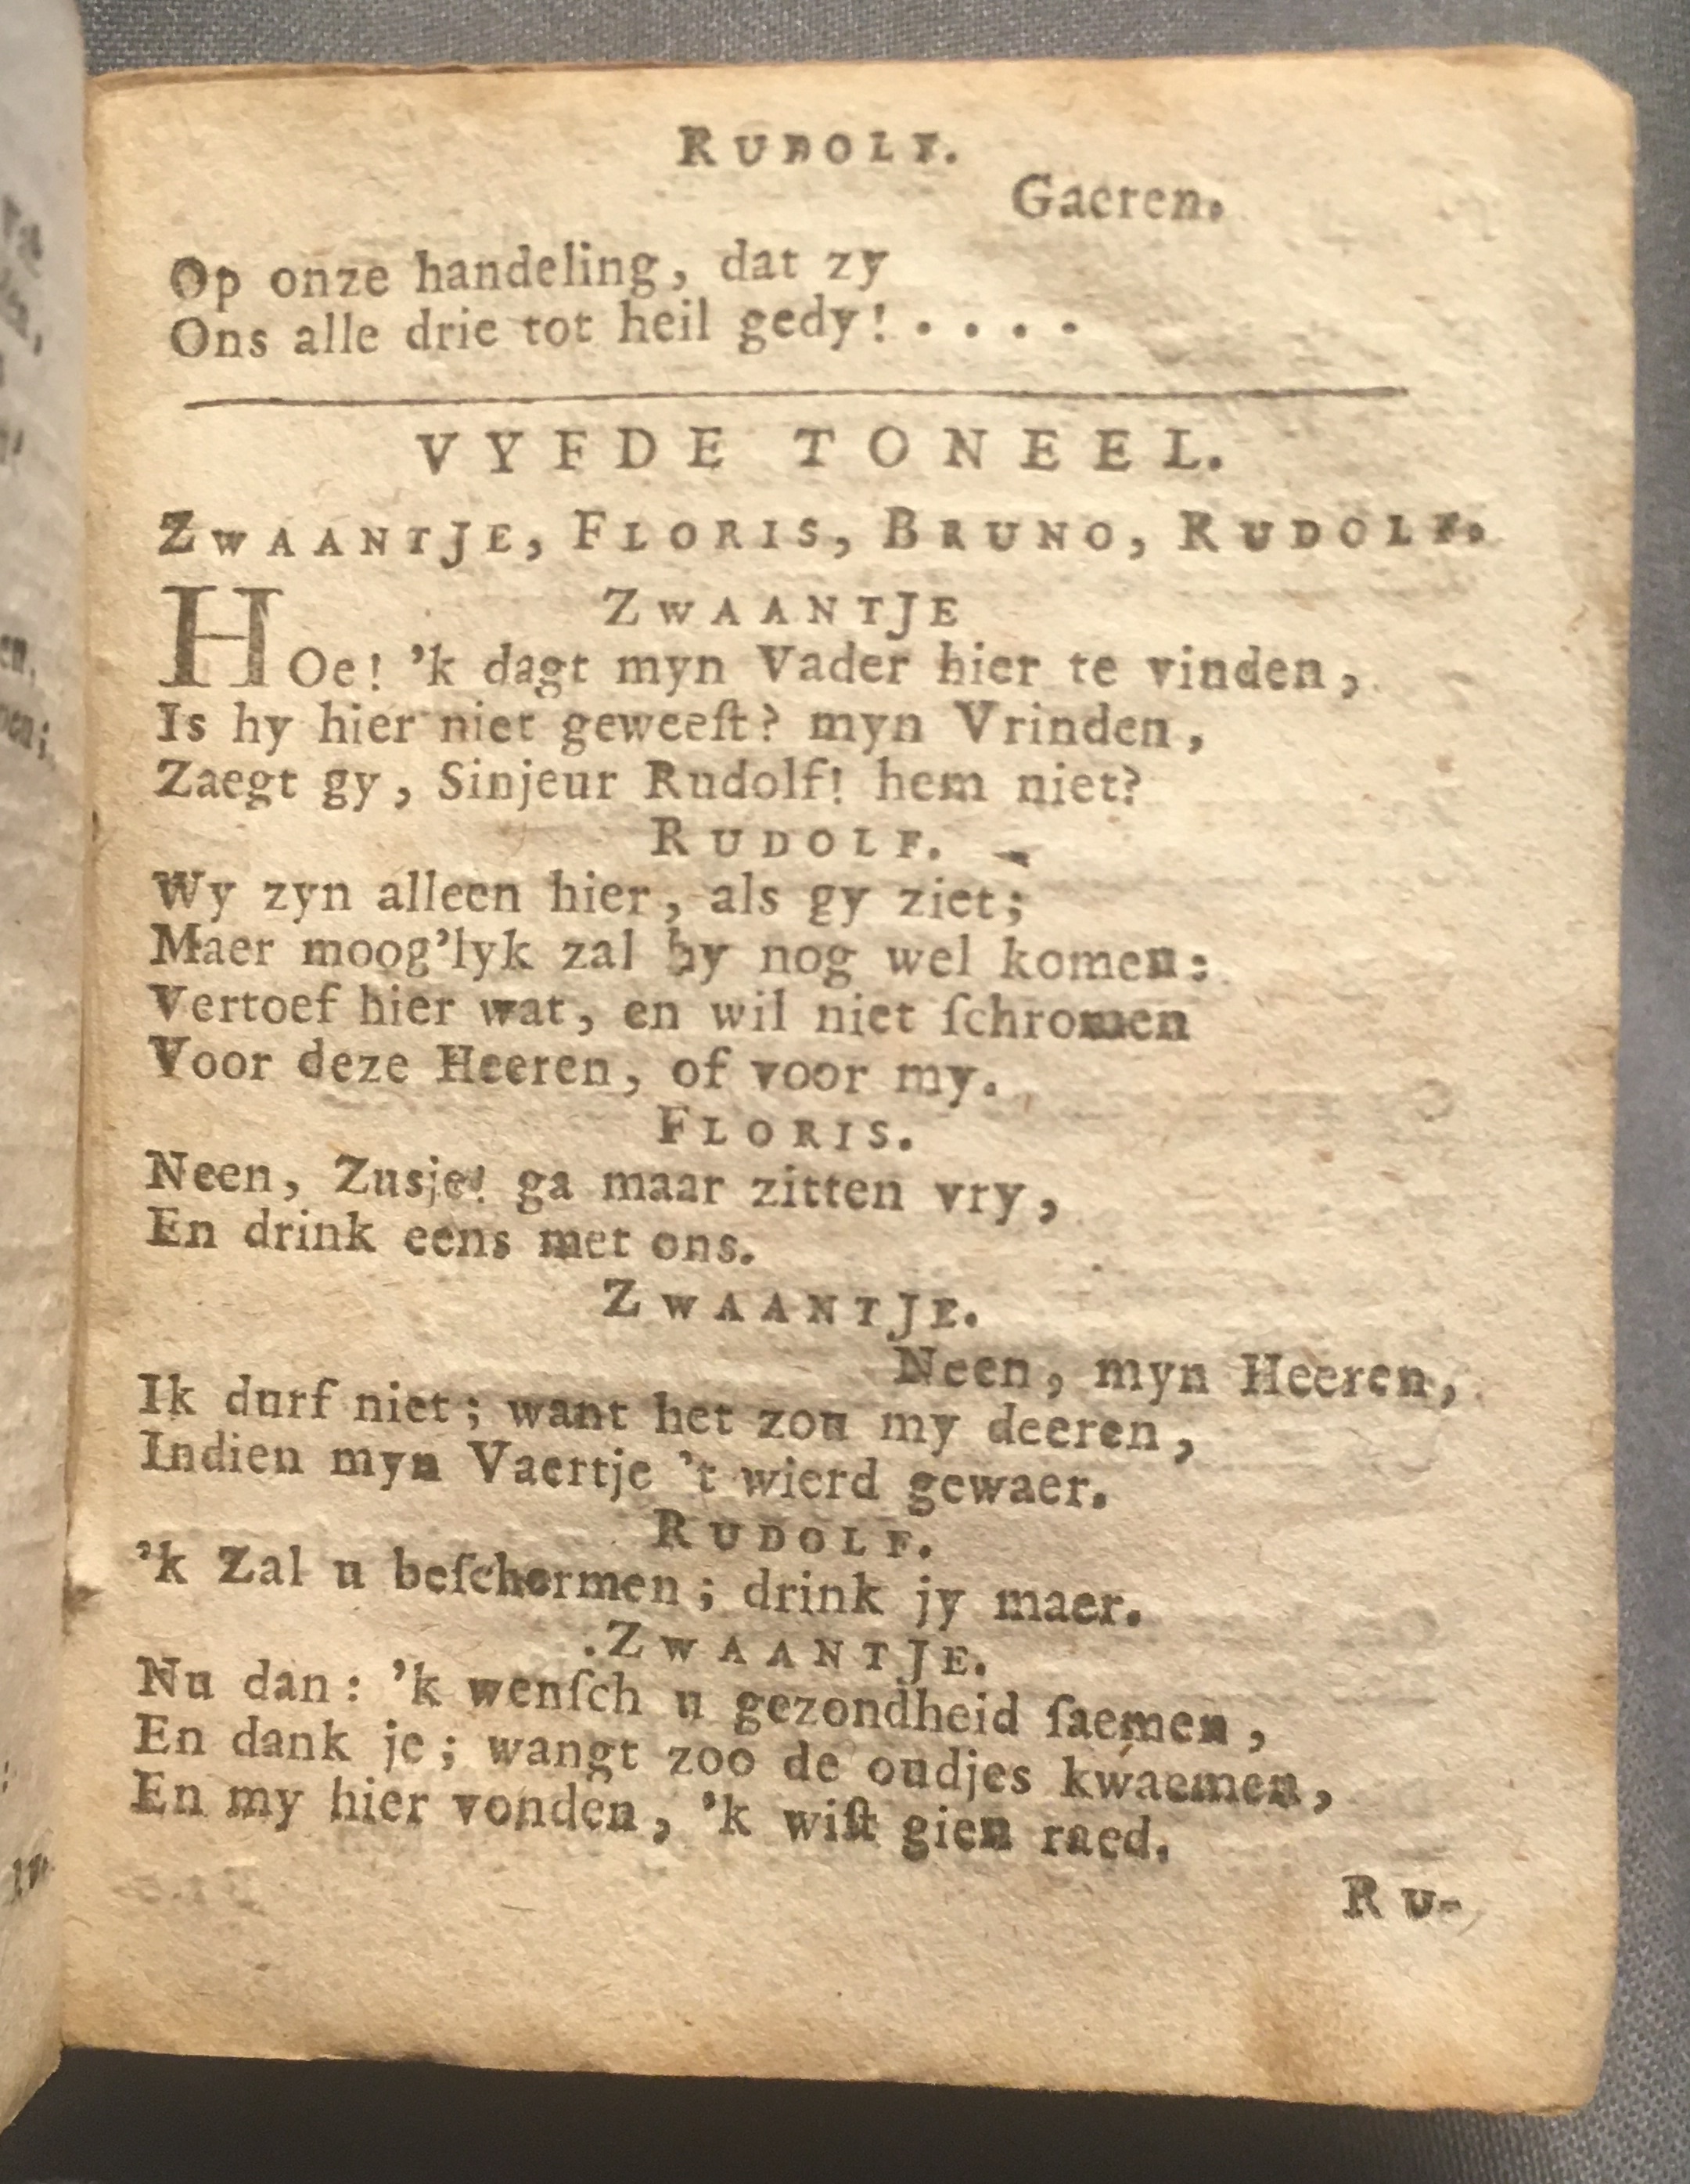 RUDOLF.
Gaeren.
Op onze handeling, dat zy
Ons alle drie tot heil gedy! . . . .
VYFDE TONEEL.
ZWAANTJE, FLORIS, BRUNO, RUDOLF.
ZWAANTJE
HOe! 'k dagt myn Vader hier te vinden,
Is hy hier niet geweeſt? myn Vrinden,
Zaegt gy, Sinjeur Rudolf! hem niet?
RUDOLF.
Wy zyn alleen hier, als gy ziet;
Maer moog'lyk zal hy nog wel komen:
Vertoef hier wat, en wil niet ſchromen
Voor deze Heeren, of voor my.
FLORIS.
Neen, Zusje! ga maar zitten vry,
En drink eens met ons.
ZWAANTJE.
Neen, myn Heeren,
Ik durf niet; want het zou my deeren,
Indien myn Vaertje 't wierd gewaer.
RUDOLF.
'k Zal u beſchermen; drink jy maer.
.ZWAANTJE.
Nu dan: 'k wenſch u gezondheid ſaemen,
En dank je; wangt zoo de oudjes kwaemen,
En my hier vonden, 'k wiſt gien raed.
RU-